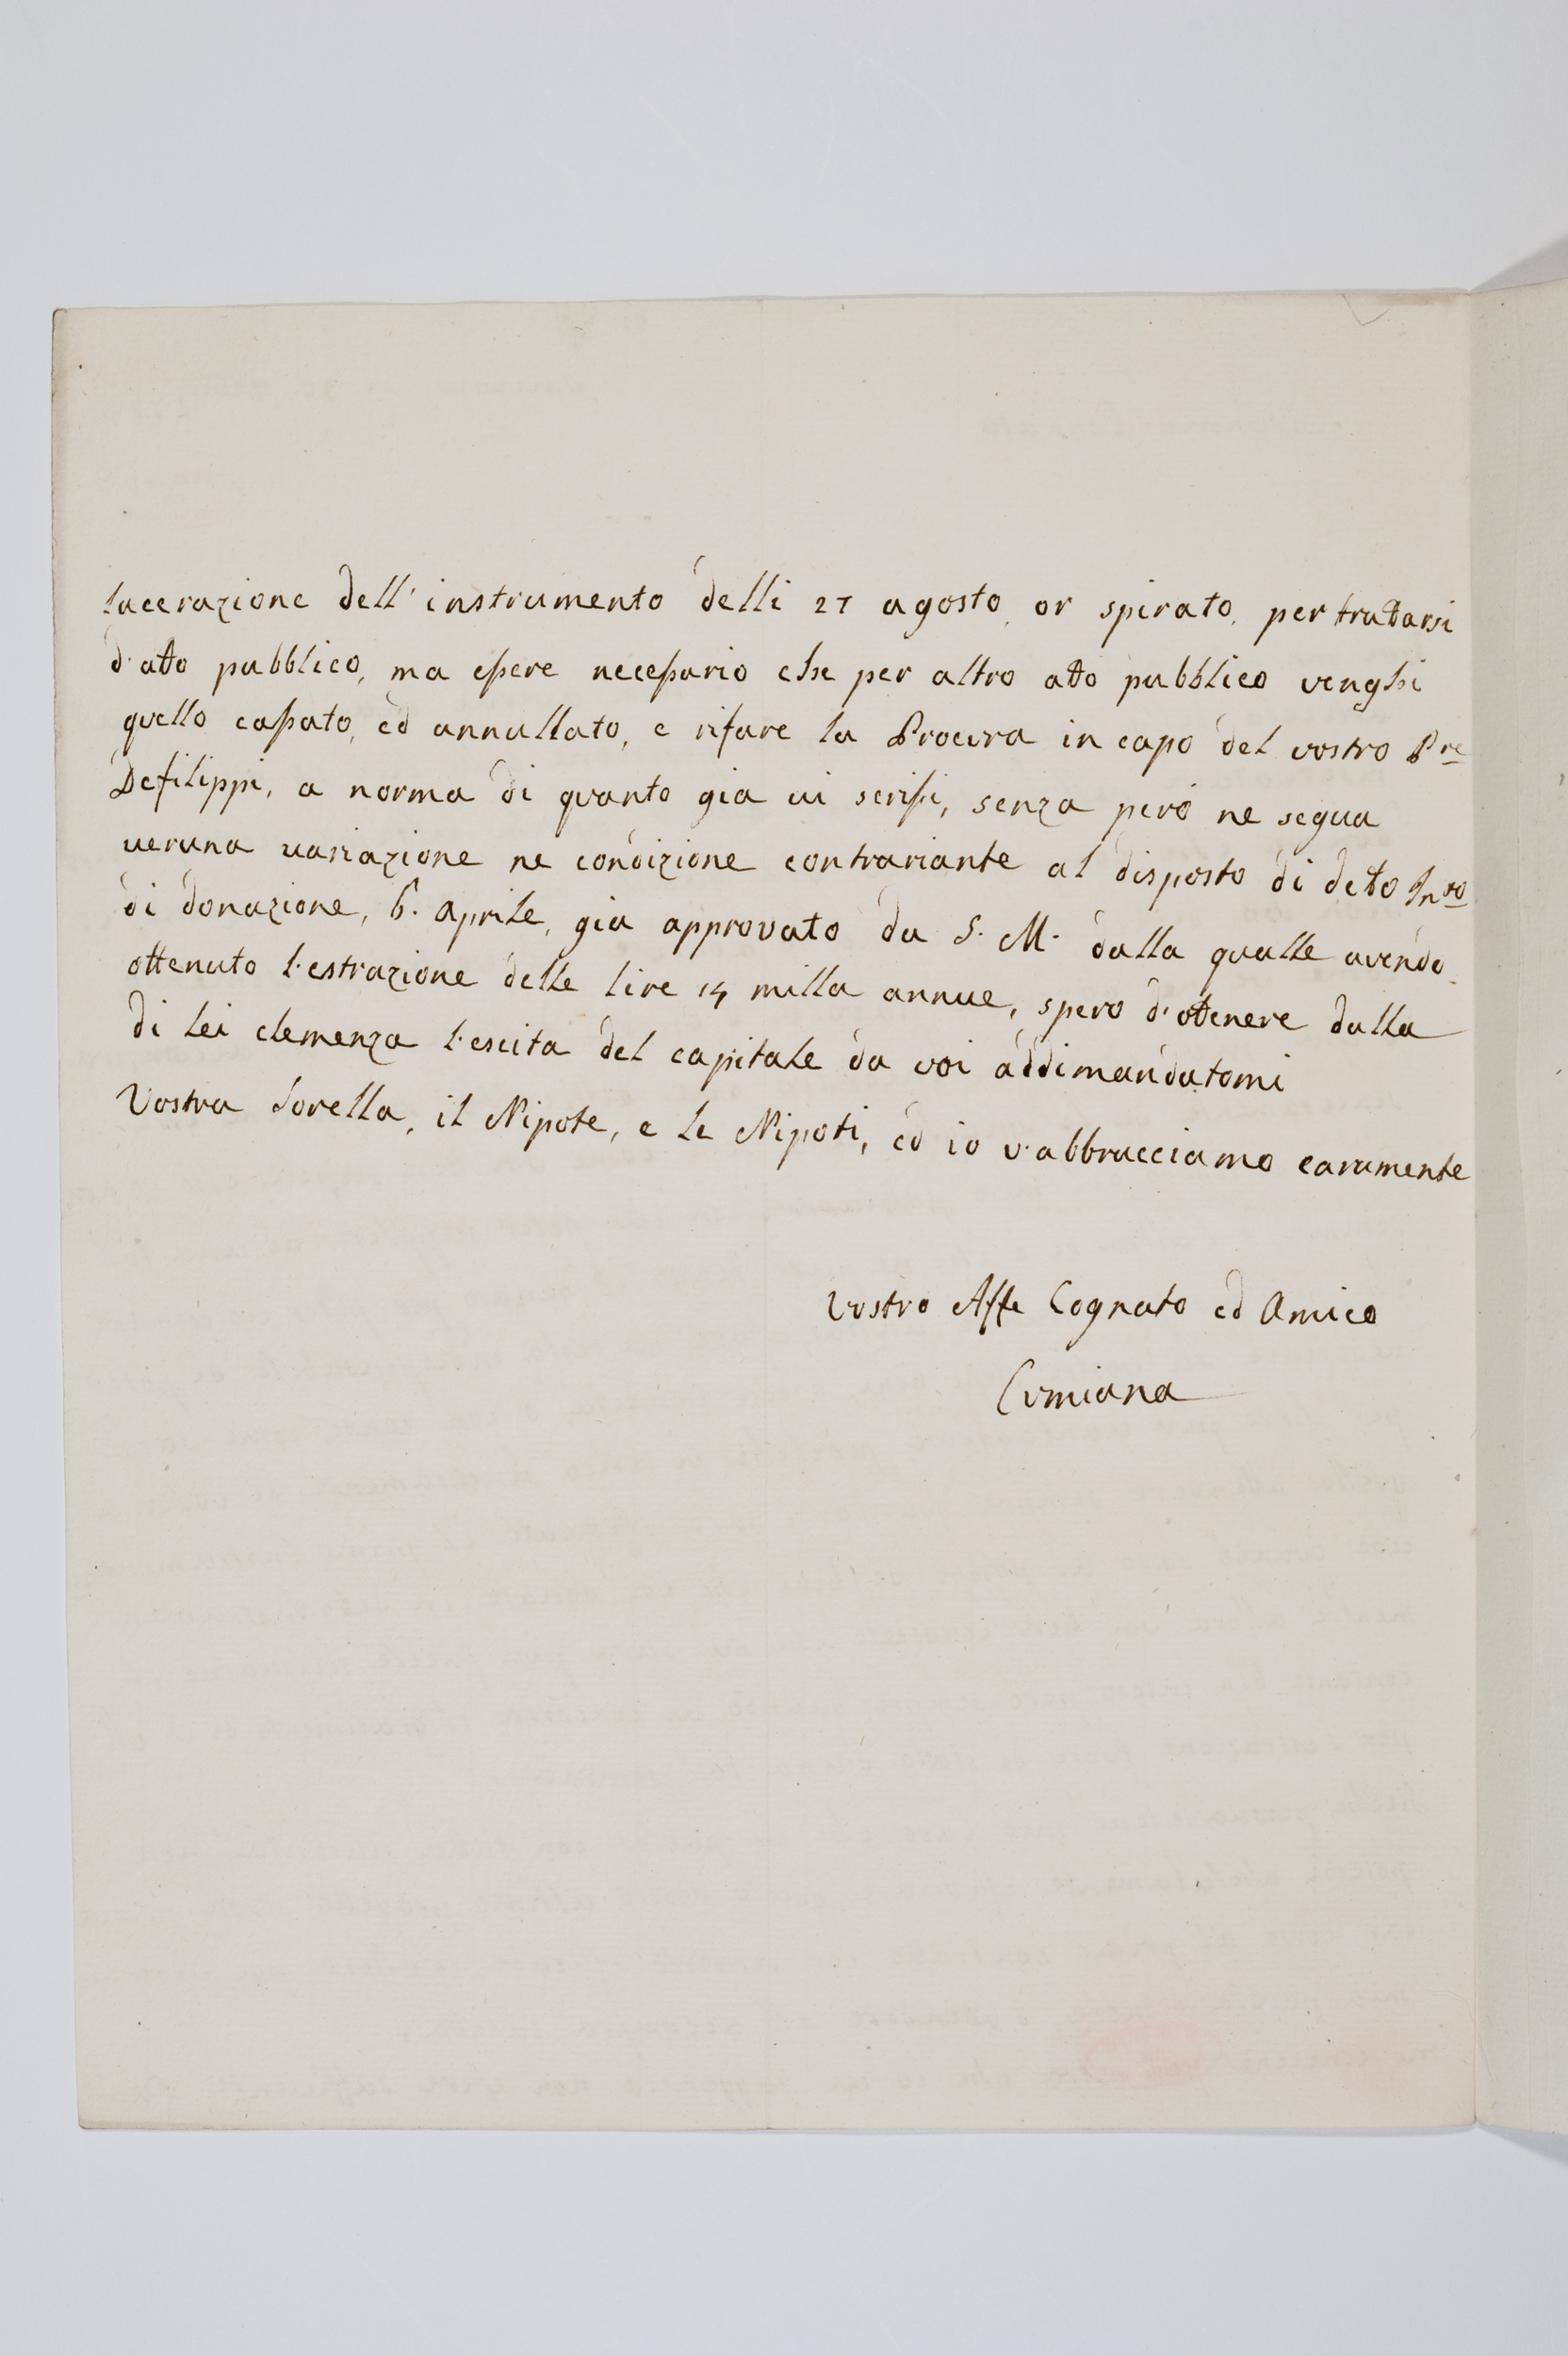 lacerazione dell'instrumento delli 27 agosto, or spirato, per trattarsi
d'atto pubblico, ma essere necessario che per altro atto pubblico venghi
quello cassato, ed annullato, e rifare la Procura in capo del vostro Pre
Defilippi, a norma di quanto gia vi scrissi, senza però ne segua
veruna variazione ne condizione contrariante al disposto di detto Inro
di donazione, 6. Aprile, gia approvato da S. M. dalla qualle avendo
ottenuto l'estrazione delle lire 14 milla annue, spero d'ottenere dalla
di lei clemenza l'escita del capitale da voi addimandatomi
Vostra Sorella, il Nipote, e le Nipoti, ed io v'abbracciamo caramente
Vostro Affe Cognato ed Amico
Cumiana